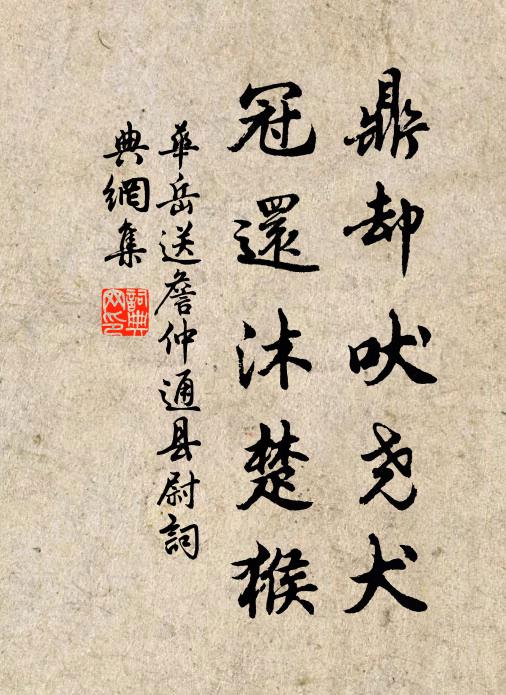 鼎却吠尧犬
冠還沐楚猴
華岳送詹仲通县尉詞
典網集
詞典网印